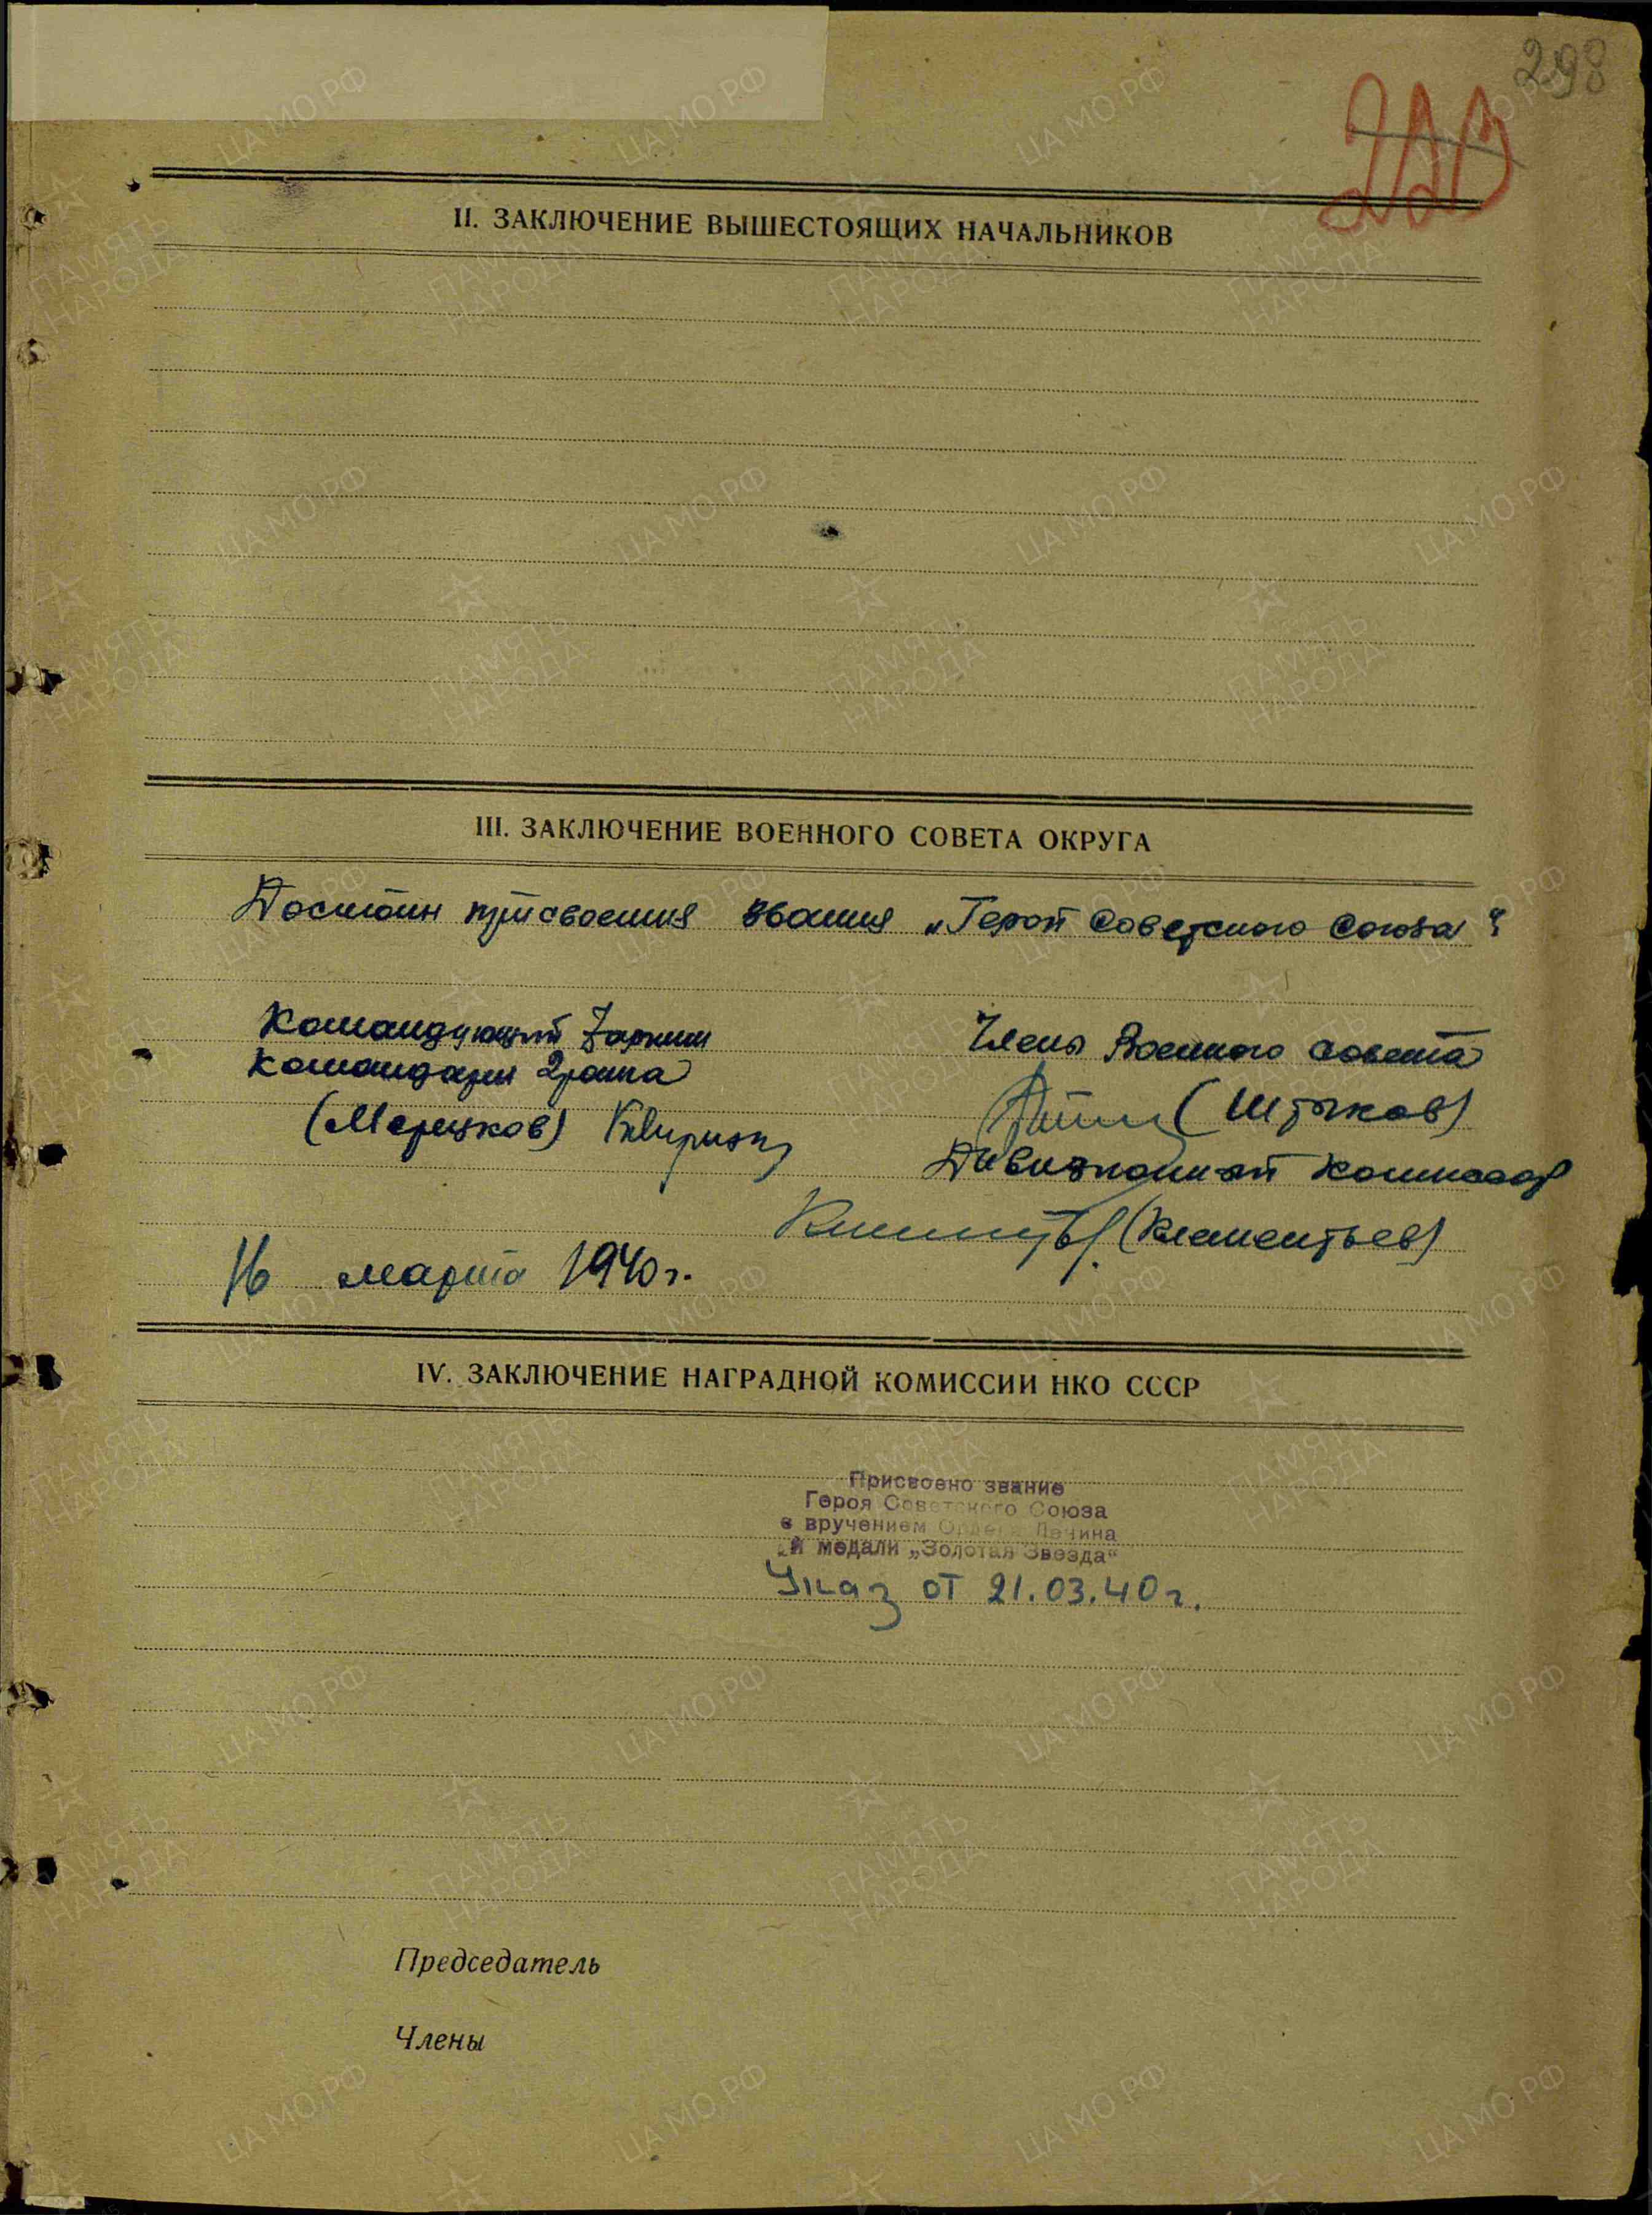 298
223
II. ЗАКЛЮЧЕНИЕ ВЫШЕСТОЯЩИХ НАЧАЛЬНИКОВ
III. ЗАКЛЮЧЕНИЕ ВОЕННОГО СОВЕТА ОКРУГА
Достоин присвоения звания „Герой Советского Союза“
Командующий 7 армии
Командарм 2 ранга
(Мерецков)
Члены Военного совета
(Штыков)
Дивизионный комиссар
(Клементьев)
16 марта 1940 г.
IV. ЗАКЛЮЧЕНИЕ НАГРАДНОЙ КОМИССИИ НКО СССР
Присвоено звание
Героя Советского Союза
с вручением Ордена Ленина
и медали „Золотая Звезда“
Указ от 21.03.40 г.
Председатель
Члены
ЦА МО РФ
ПАМЯТЬ
НАРОДА